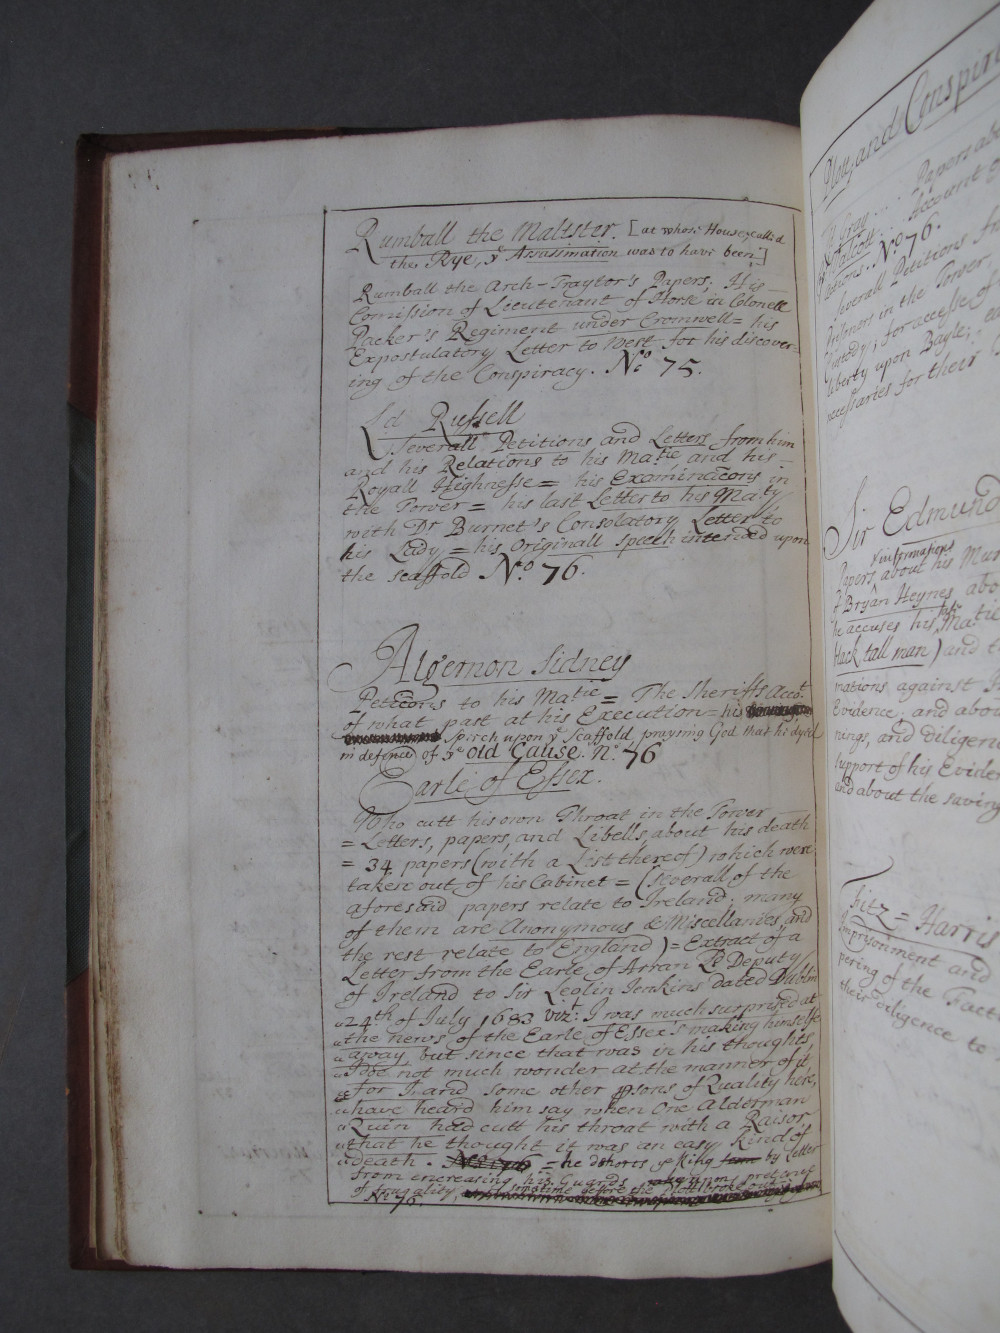 Rumball the Maltster. [at whose House, called
the Rye, ye Assassination was to have been]
Rumball the Arch-Traytor's Papers; His
Comission of Lieutenant of Horse in Colonell
Packer's Regiment under Cromwell = his
Expostulatory Letter to West for his discover=
ing of the Conspiracy. No. 75.
Ld Russell
Severall Petitions and Letters from him
and his Relations to his Matie and his
Royall Highnesse = his Examinations in
the Tower = his last Letter to his Maty
with Dr Burnet's Consolatory Letter to
his Lady = his Originall speech intended upon
the scaffold No. 76.
Algernon Sidney
Peticons to his Matie = The Sheriffs Accot
of what past at his Execution = his
Speech upon ye Scaffold praying God that he dyed
in defence of ye old Cause. No. 76
Earle of Essex.
Who cutt his own Throat in the Tower
= Letters, papers, and Libells, about his death
= 34 papers (with a List thereof) which were
taken out of his Cabinet = (Severall of the
aforesaid papers relate to Ireland; many
of them are Anonymous & Miscellanies, and
the rest relate to England) = Extract of a
Letter from the Earle of Arran Ld Deputy
of Ireland to Sir Leolin Jenkins dated Dublin
24th of July 1683 vizt. I was much surprised at
the news of the Earle of Essex's making himself
away, but since that was in his thoughts,
I doe not much wonder at the manner of it,
for I, and some other psons of Quality here,
have heard him say, when one Alderman
Quin had cutt his throat with a Raisor
that he thought it was an easy kind of
death. No. 76 = he dehorts ye King by Letter
from encreasing his Guards upon pretence
of frugality, sometime before the Plot
No. 76.
Plot, and Conspira
Papers abo
Account o
No. 76.
Severall Petitions fr
Prisoners in the Tower
Custody; for accesse of
liberty upon Bayle;
necessaries for their
Sir Edmund
informations
Papers about his Mur
of Bryan Heynes abo
he accuses his Matie
black tall man) and t
mations against
Evidence; and abou
rings, and diligenc
support of his Eviden
and about the saving
Fitz = Harris
Imprisonment and
pering of the Fact
their diligence to